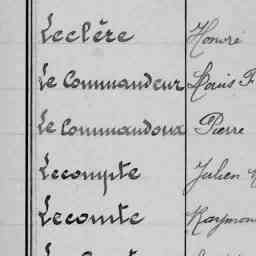 Leclère Honoré
Le Commandeur Louis F
Le Commandoux Pierre
Lecompte Julien
Lecomte Raymon